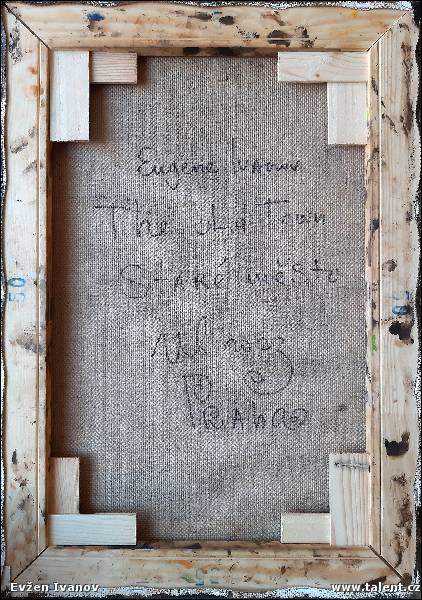 Eugene Ivanov
The Old Town
Staré město
Praha
50
50
Evžen Ivanov
www.talent.cz